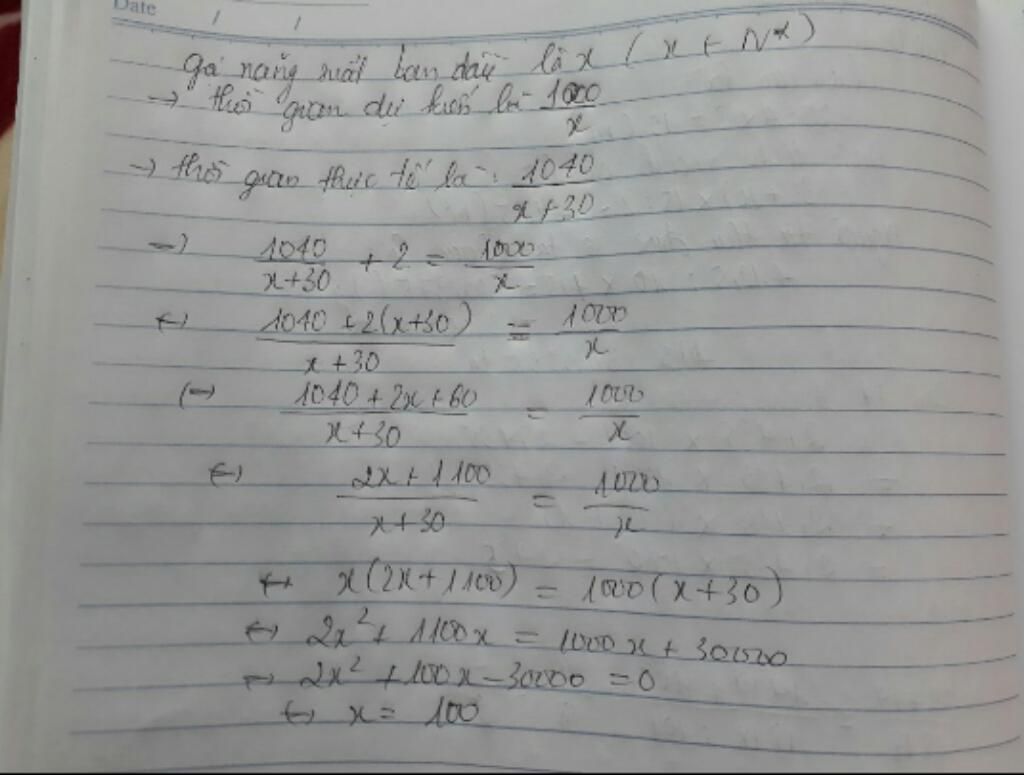 Date / /
gọi năng suất ban đầu là x ( x ∈ N* )
→ thời gian dự kiến là 1000/x
→ thời gian thực tế là : 1040/(x+30)
→ 1040/(x+30) + 2 = 1000/x
↔ (1040 + 2(x+30))/(x+30) = 1000/x
↔ (1040 + 2x + 60)/(x+30) = 1000/x
↔ (2x + 1100)/(x+30) = 1000/x
↔ x(2x+1100) = 1000(x+30)
↔ 2x² + 1100x = 1000x + 30000
↔ 2x² + 100x - 30000 = 0
↔ x = 100